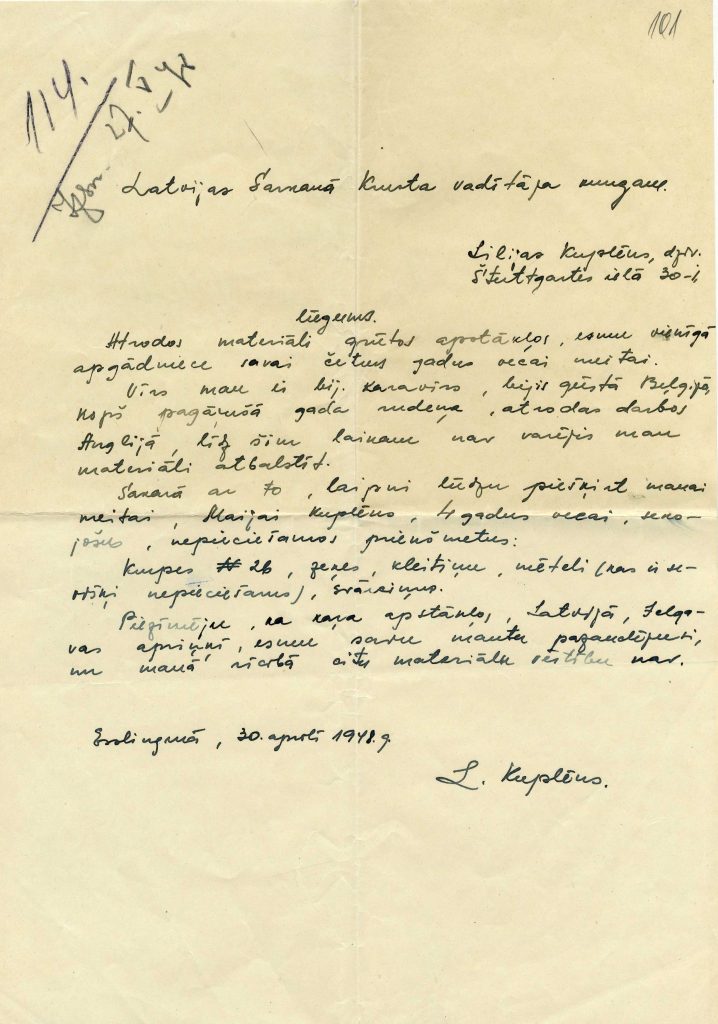 101
114.
27. V 48
Latvijas Sarkanā Krusta vadītāja kungam.
Lilijas Kuplēns, dzīv.
Štuttgartes ielā 30-I,
lūgums.
Atrodos materiāli grūtos apstākļos, esmu vienīgā
apgādniece savai četrus gadus vecai meitai.
Vīrs man ir bij. karavīrs, bijis gūstā Beļģijā,
kopš pagājušā gada rudeņa, atrodas darbos
Anglijā, līdz šim laikam nav varējis man
materiāli atbalstīt.
Sakarā ar to, laipni lūdzu piešķirt manai
meitai, Maijai Kuplēns, 4 gadus vecai, seko-
jošus, nepieciešamos priekšmetus:
Kurpes # 26, zeķes, kleitiņu, mēteli (kas ir se-
višķi nepieciešams), svārciņus.
Piezīmēju, ka kaŗa apstākļos, Latvijā, Jelga-
vas apriņķī, esmu savu mantu pazaudējusi,
un manā rīcībā citu materiālu vērtību nav.
Esslingenā, 30. aprīlī 1948. g.
L. Kuplēns.